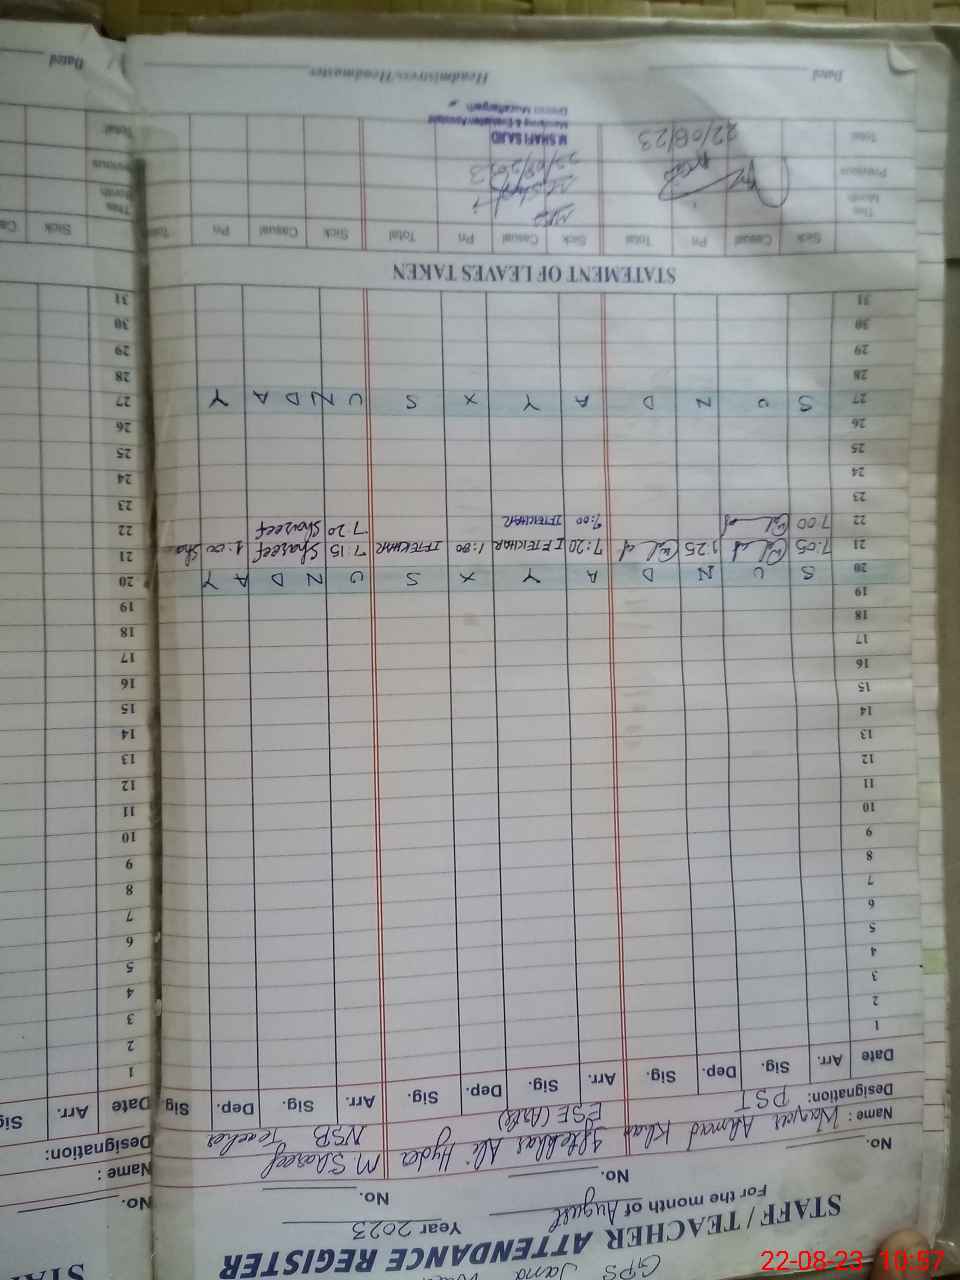 GPS Jama
STAFF / TEACHER ATTENDANCE REGISTER
For the month of August Year 2023
No. No. No.
Name: Waqas Ahmad Khan Iftekhar Ali Hyder M Shareef
Designation: PST ESE (Arts) NSB Teacher
Date Arr. Sig. Dep. Sig. Arr. Sig. Dep. Sig. Arr. Sig. Dep. Sig.
1
2
3
4
5
6
7
8
9
10
11
12
13
14
15
16
17
18
19
20 S U N D A Y X S U N D A Y
21 7:05 1:25 7:20 IFTEKHAR 1:00 IFTEKHAR 7:15 Shareef 1:00 Sha
22 7:00 7:00 IFTEKHAR 7:20 Shareef
23
24
25
26
27 S U N D A Y X S U N D A Y
28
29
30
31
STATEMENT OF LEAVES TAKEN
Sick Casual Pri Total Sick Casual Pri Total Sick Casual Pri Total
This Month
Previous
Total
22/08/23
22/08/2023
M SHAFI SAJID
Monitoring & Evaluation Assistant
District Muzaffargarh
Dated Headmistress/Headmaster
STA
No.
Name :
Designation:
Date Arr. Sig
1
2
3
4
5
6
7
8
9
10
11
12
13
14
15
16
17
18
19
20
21
22
23
24
25
26
27
28
29
30
31
Sick Ca
This Month
Previous
Total
Dated
22-08-23 10:57